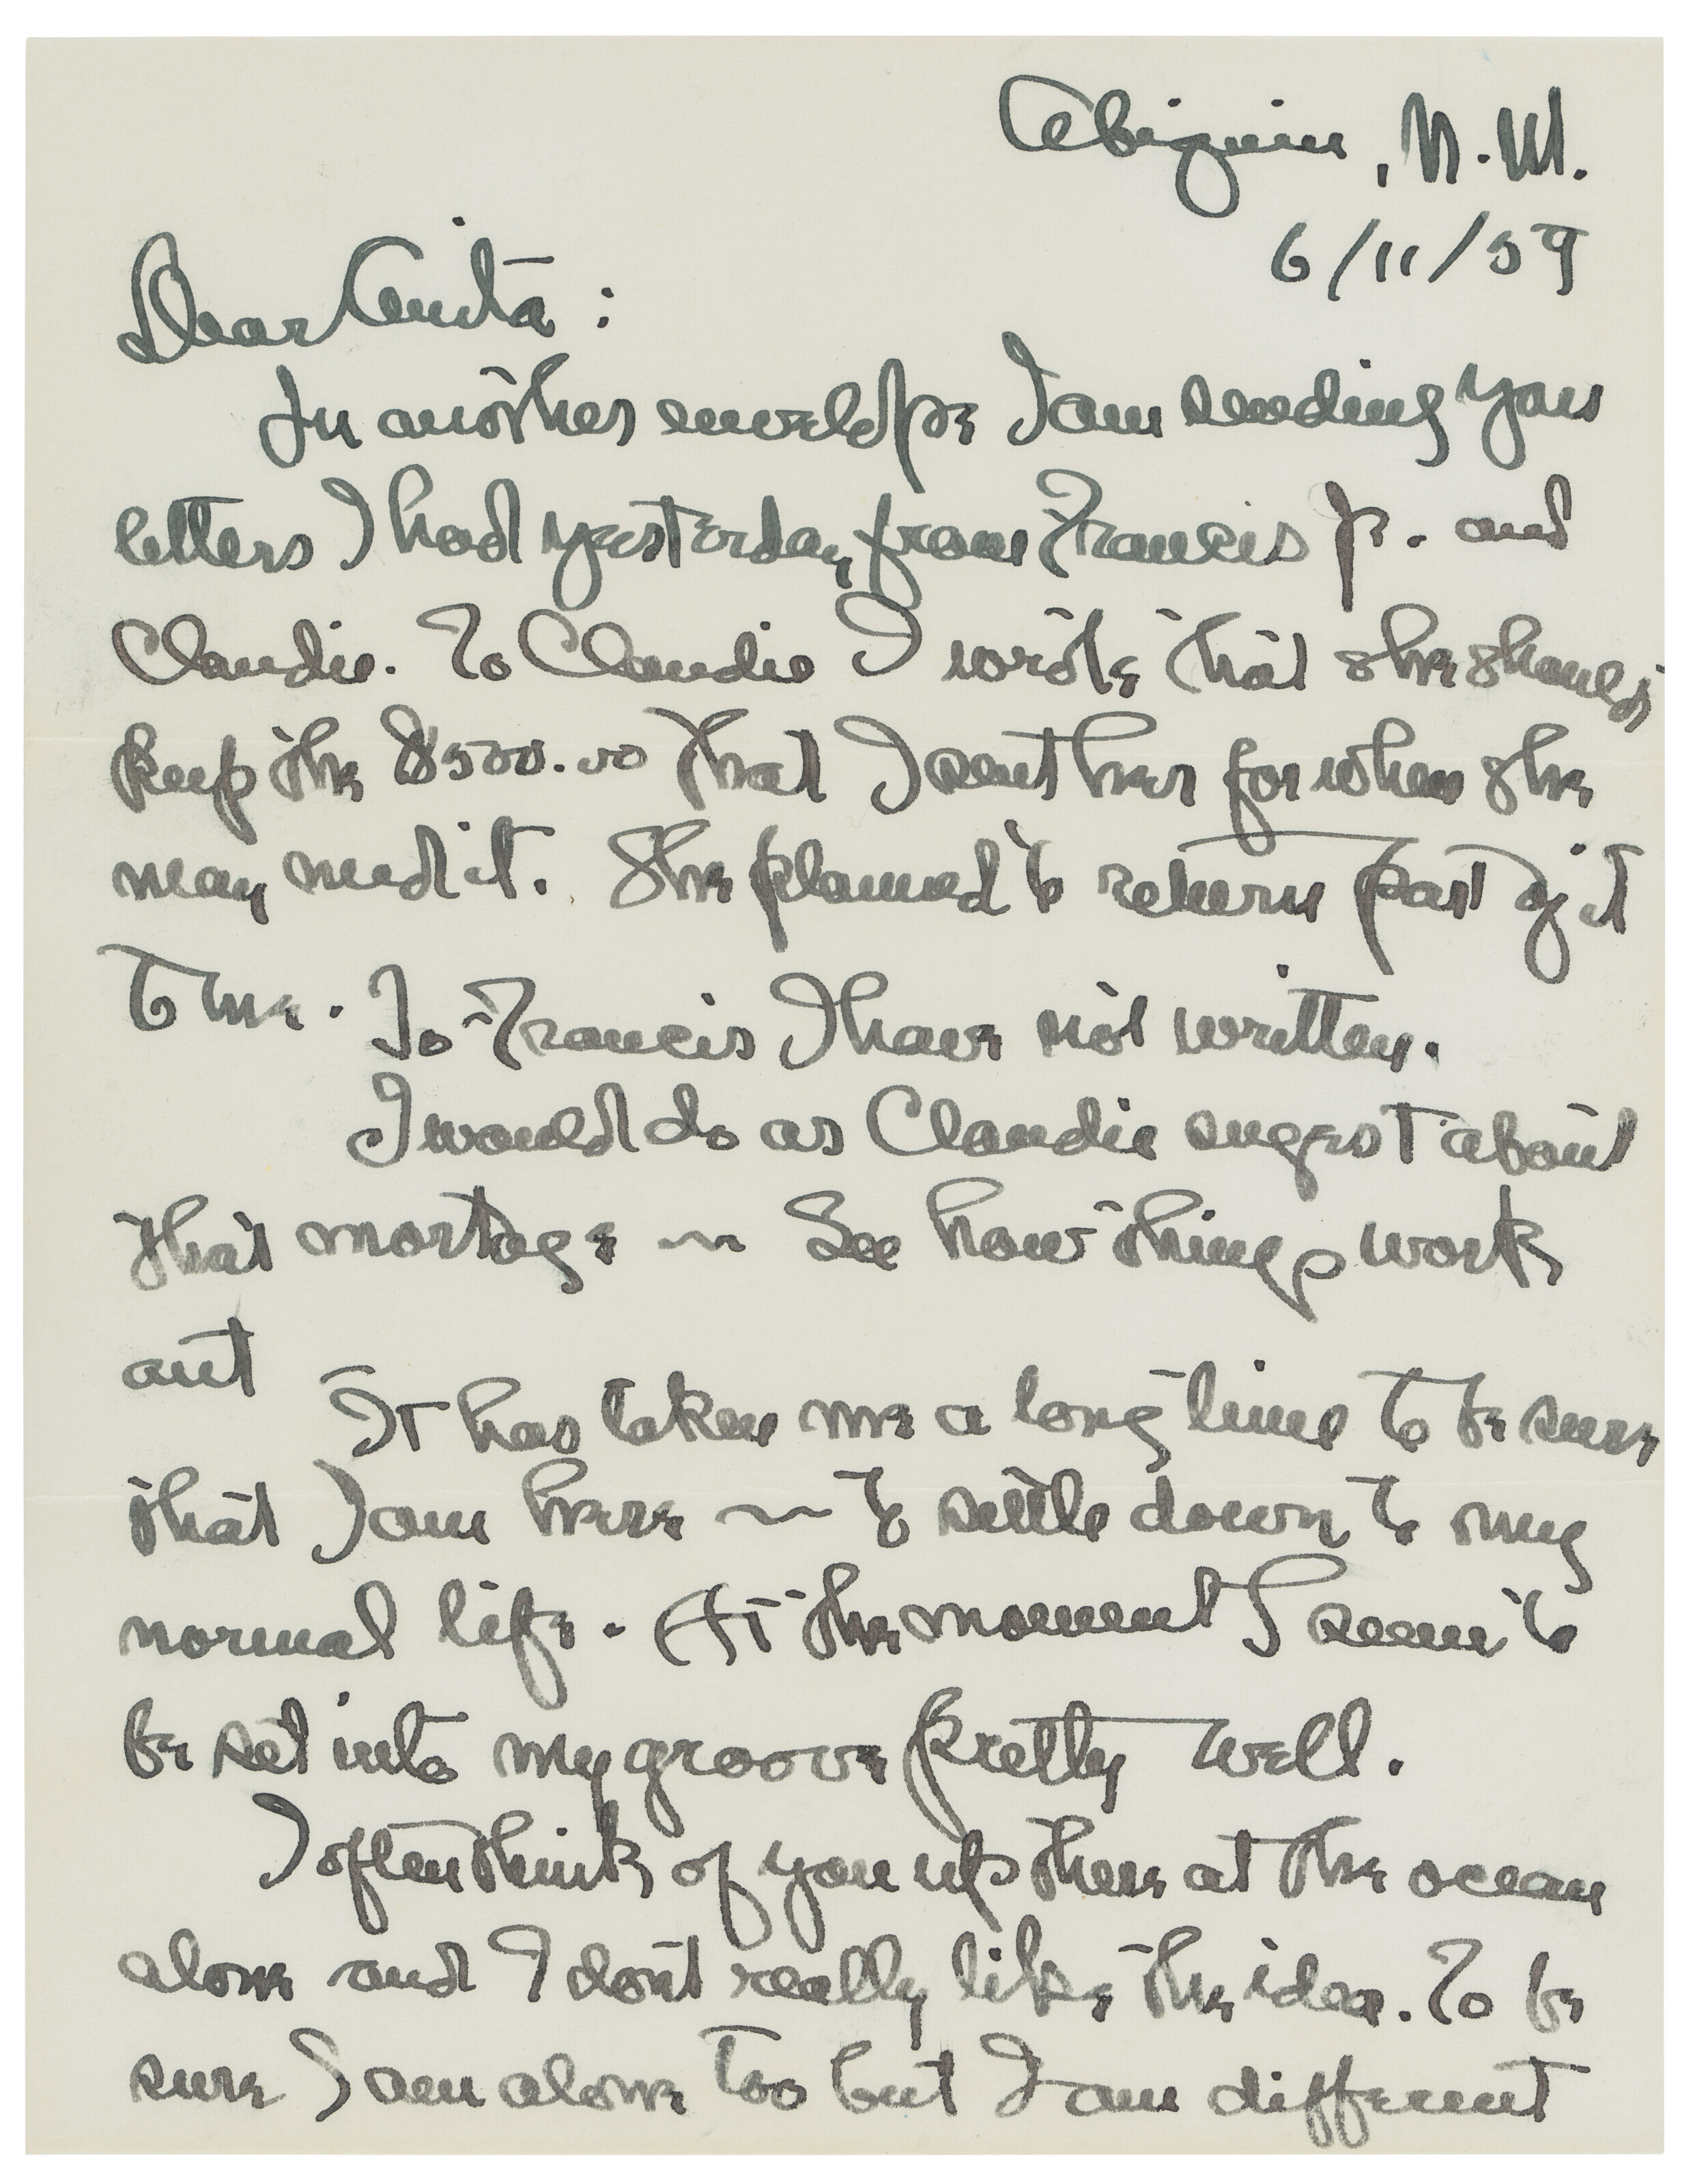 Abiquiu, N.M.
6/11/59
Dear Anita:
In another envelope I am sending you
letters I had yesterday from Francis Jr. and
Claudie. To Claudie I wrote that she should
keep the $500.00 that I sent her for when she
may need it. She planned to return part of it
to me. To Francis I have not written.
I would do as Claudie sugest about
that mortage ~ See how things work
out
It has taken me a long time to be sure
that I am here ~ to settle down to my
normal life. At the moment I seem to
be set into my groove pretty well.
I often think of you up there at the ocean
alone and I don't really like the idea. To be
sure I am alone too but I am different